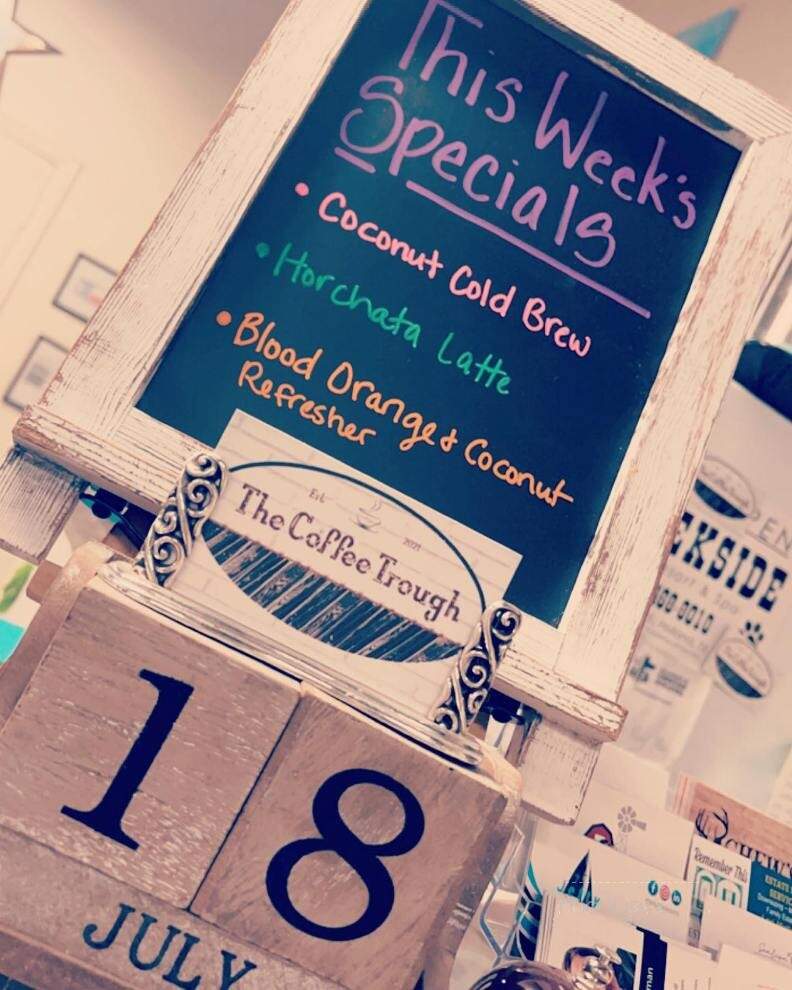 This Week's
Specials
• Coconut Cold Brew
• Horchata Latte
• Blood Orange & Coconut
Refresher
Est. 2021
The Coffee Trough
18
JULY
Remember This